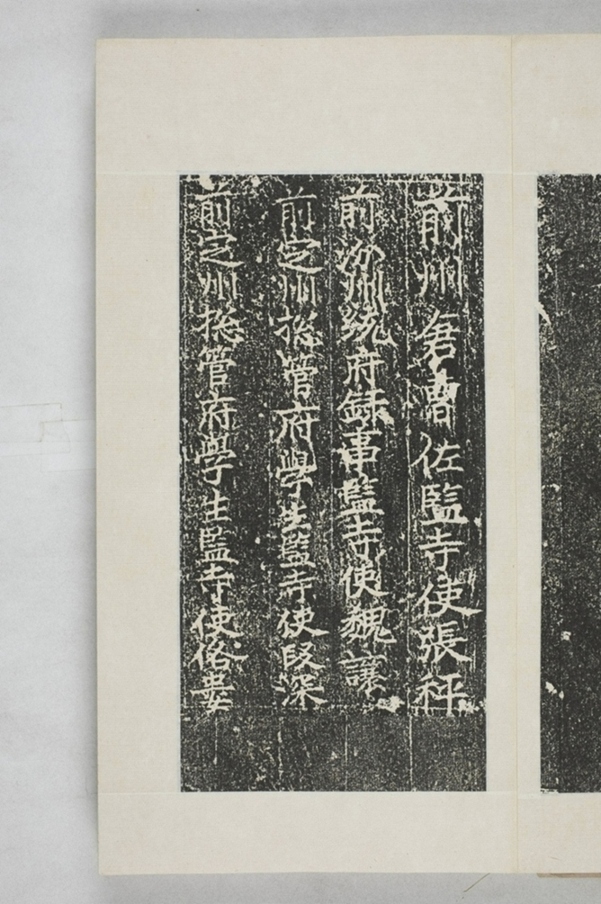 前州倉曹佐監寺使張秤
前州統府録事監寺使魏讓
前定州捴管府學生監寺使段深
前定州捴管府學生監寺使俗婁